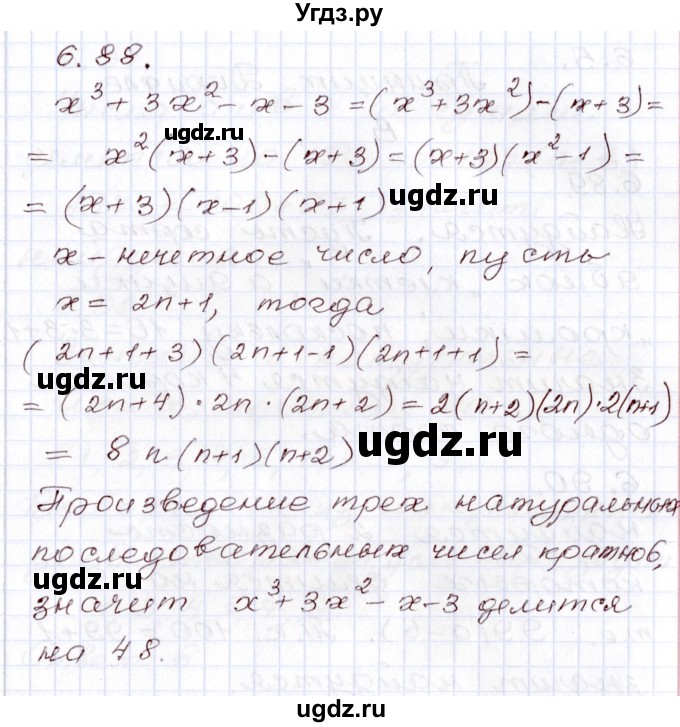 Угdz.ру
6.88.
x³ + 3x² - x - 3 = (x³ + 3x²) - (x + 3) =
ugdz.ru
= x²(x + 3) - (x + 3) = (x + 3)(x² - 1) =
= (x + 3)(x - 1)(x + 1)
ugdz.ru
x - нечетное число, пусть
x = 2n + 1, тогда
(2n + 1 + 3)(2n + 1 - 1)(2n + 1 + 1) =
ugdz.ru
= (2n + 4) · 2n · (2n + 2) = 2(n + 2)(2n) · 2(n + 1)
= 8n(n + 1)(n + 2)
ugdz.ru
Произведение трех натуральных
последовательных чисел кратно 6,
ugdz.ru
значит x³ + 3x² - x - 3 делится
на 48.
ugdz.ru
ugdz.ru